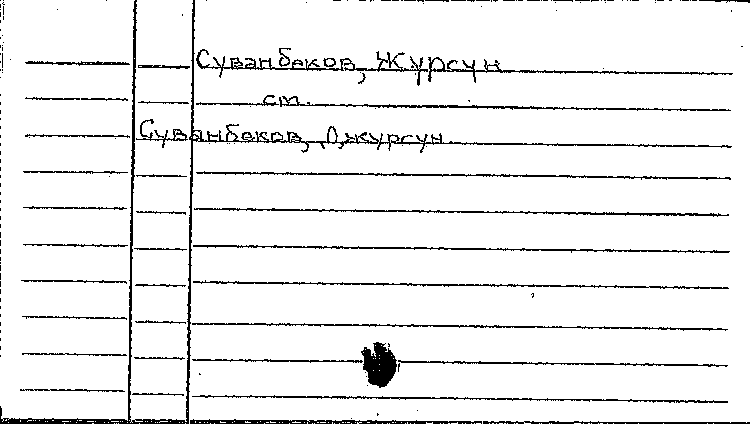 Суванбеков, Журсун
см.
Суванбеков, Джурсун.